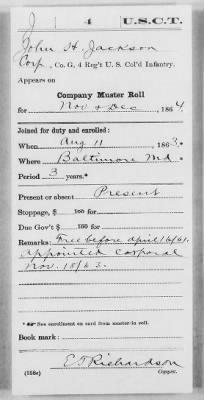 J | 4 | U.S.C.T.
John H. Jackson
Corp, Co. G, 4 Reg't U. S. Col'd Infantry.
Appears on
Company Muster Roll
for Nov & Dec, 1864.
Joined for duty and enrolled:
When Aug 11, 1863.*
Where Baltimore Md. *
Period 3 years.*
Present or absent Present
Stoppage, $ 100 for
Due Gov't $ 100 for
Remarks: Free before April 19/61.
Appointed Corporal
Nov. 18/63.
* See enrollment on card from muster-in roll.
Book mark:
E T Richardson
(358c) Copyist.